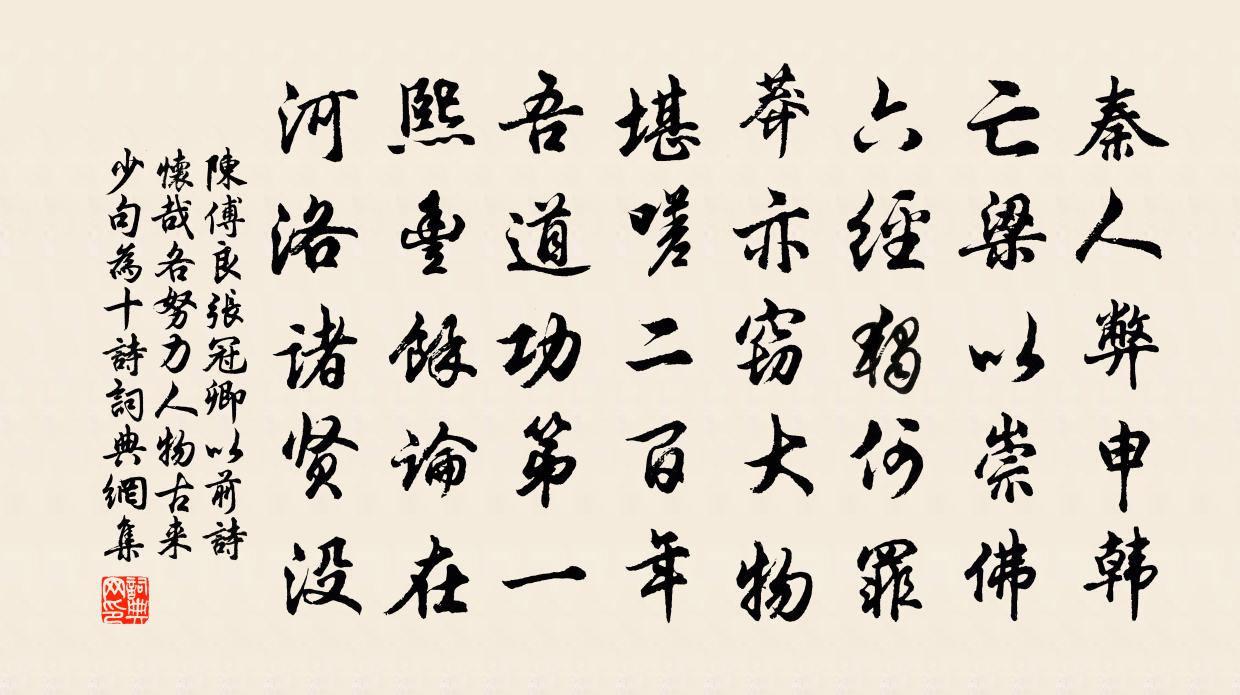 秦人弊申韩
亡梁以崇佛
六經獨何罪
莽亦窃大物
堪嗟二百年
吾道功第一
熙豐餘論在
河洛诸贤没
陳傅良張冠卿以前詩
懷哉各努力人物古来
少句為十詩詞典網集
詞典网印